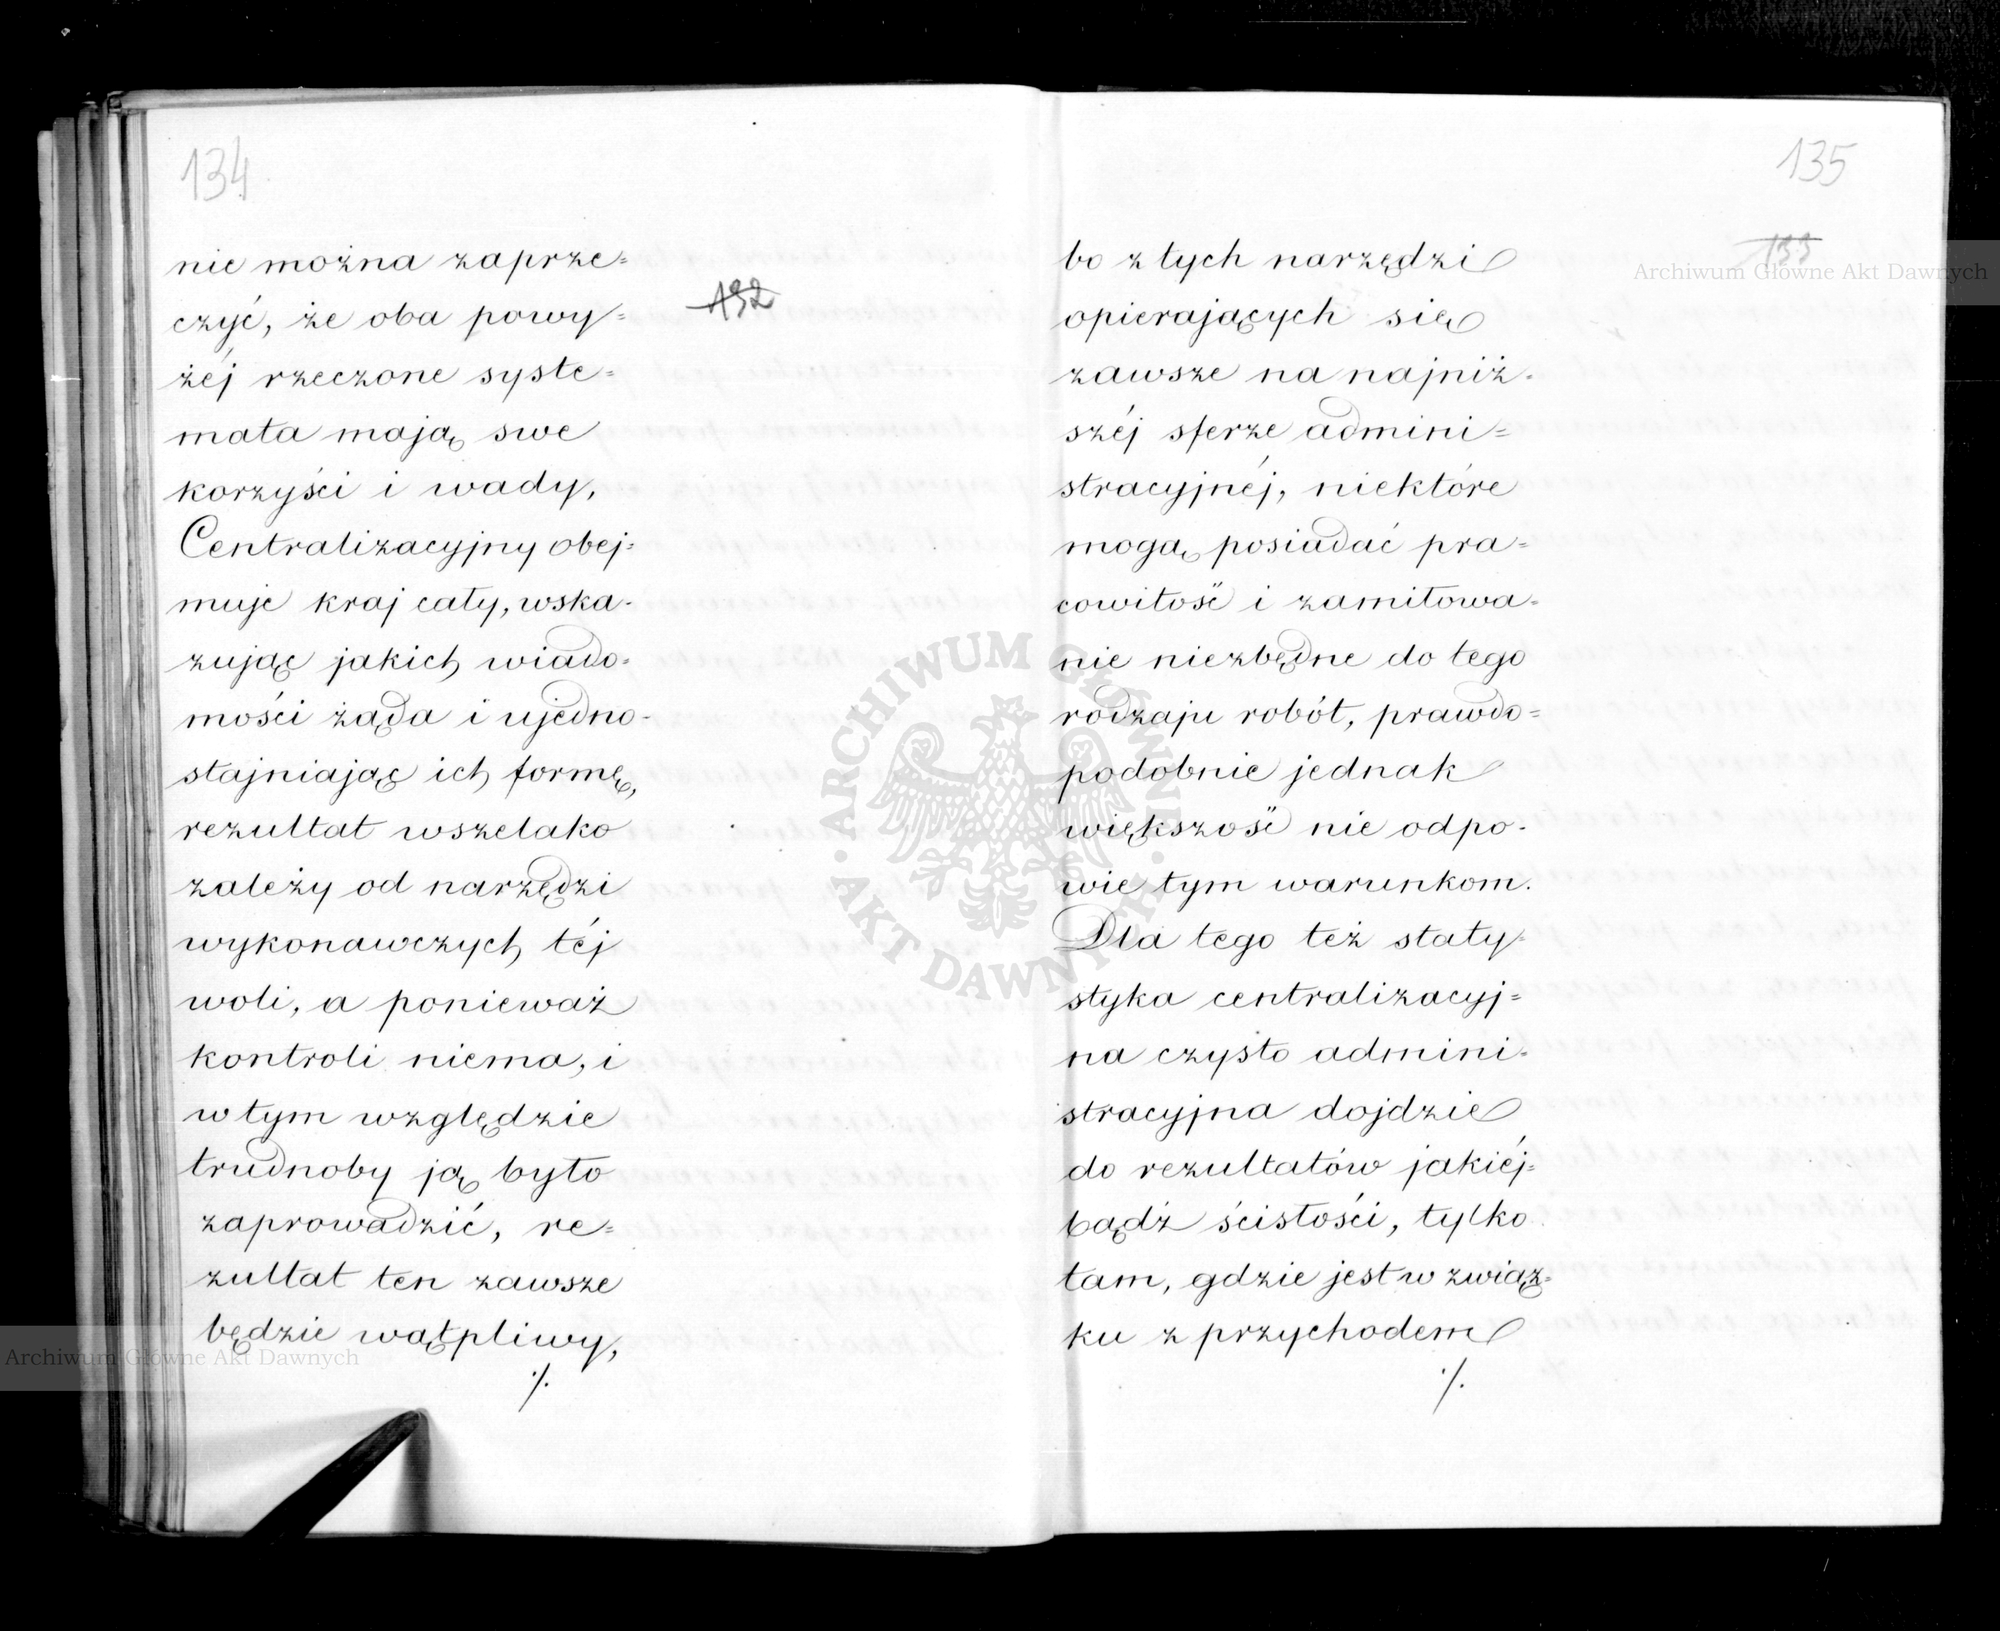 134
nie można zaprze=
czyć, że oba powy=
132
żéj rzeczone syste=
mata mają swe
korzyści i wady,
Centralizacyjny obej=
muje kraj cały, wska-
zując jakich wiado-
mości żąda i ujedno-
stajniając ich formę,
rezultat wszelako
zależy od narzędzi
wykonawczych téj
woli, a ponieważ
kontroli niema, i
w tym względzie
trudnoby ją było
zaprowadzić, re=
zultat ten zawsze
będzie wątpliwy,
./.
135
133
bo z tych narzędzi
opierających się
zawsze na najniż-
széj sferze admini=
stracyjnéj, niektóre
mogą posiadać pra=
cowitość i zamiłowa=
nie niezbędne do tego
rodzaju robót, prawdo=
podobnie jednak
większość nie odpo-
wie tym warunkom.
Dla tego też staty-
styka centralizacyj=
na czysto admini-
stracyjna dojdzie
do rezultatów jakiéj=
bądź ścisłości, tylko
tam, gdzie jest w związ=
ku z przychodem
./.
ARCHIWUM GŁÓWNE AKT DAWNYCH
Archiwum Główne Akt Dawnych
Archiwum Główne Akt Dawnych